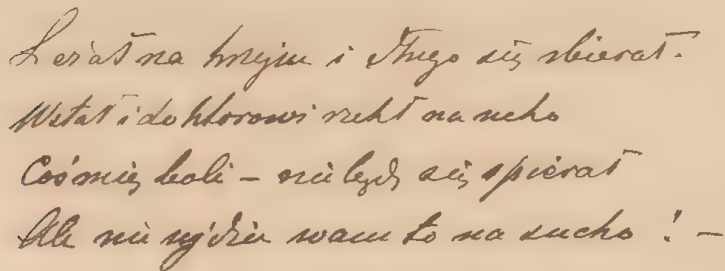 Leżał na krzyżu i długo się zbierał.
Wstał i doktorowi rzekł na ucho
Coś mię boli – nie będę się spierał
Ale nie wyjdzie wam to na sucho! –